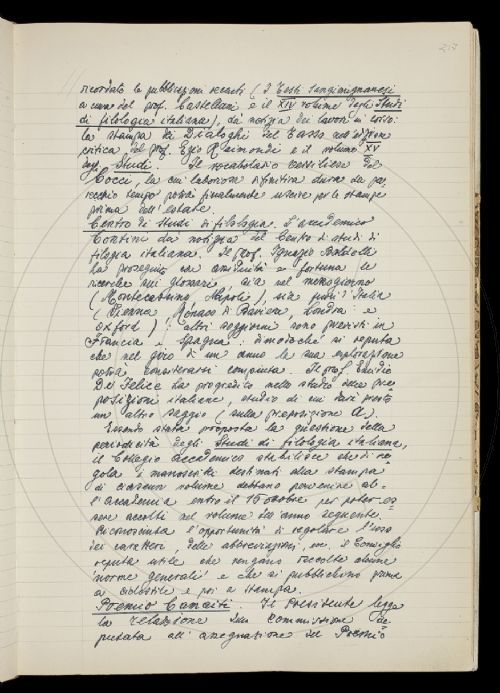 217
ricordato le pubblicazioni recenti (I Testi sangimignanesi
a cura del prof. Castellani e il XIV volume degli Studi
di filologia italiana), dà notizia dei lavori in corso:
la stampa dei Dialoghi del Tasso nell'edizione
critica del prof. Ezio Raimondi e il volume XV
degli Studi. Il vocabolario cassiliese del
Cocci, la cui laboriosa rifinitura dura da pa-
recchio tempo potrà finalmente uscire per le stampe
prima dell'estate.
Centro di Studi di filologia. L'accademico
Contini dà notizia del Centro di studi di
filogia italiana. Il prof. Ignazio Baldelli
ha proseguito con assiduità e fortuna le
ricerche sui glossari sia nel mezzogiorno
(Montecassino, Napoli), sia fuori d'Italia
(Vienna, Monaco di Baviera, Londra e
Oxford); altri soggiorni sono previsti in
Francia e Spagna: dimodoché si reputa
che nel giro di un anno la sua esplorazione
potrà considerarsi compiuta. Il prof. Emidio
De Felice ha progredito nello studio delle pre-
posizioni italiane, studio di cui darà presto
un altro saggio (sulla preposizione A).
Essendo stata proposta la questione della
periodicità degli Studi di filologia italiana,
il Collegio accademico stabilisce che di re-
gola i manoscritti destinati alla stampa
di ciascun volume debbano pervenire al-
l'Accademia entro il 15 ottobre per poter es-
sere accolti nel volume dell'anno seguente.
Riconosciuta l'opportunità di regolare l'uso
dei caratteri, delle abbreviazioni, ecc. il Consiglio
reputa utile che vengano raccolte alcune
norme generali e che si pubblichino prima
a ciclostile e poi a stampa.
Premio Canaiti. Il Presidente legge
la relazione della commissione de-
putata all'assegnazione del Premio